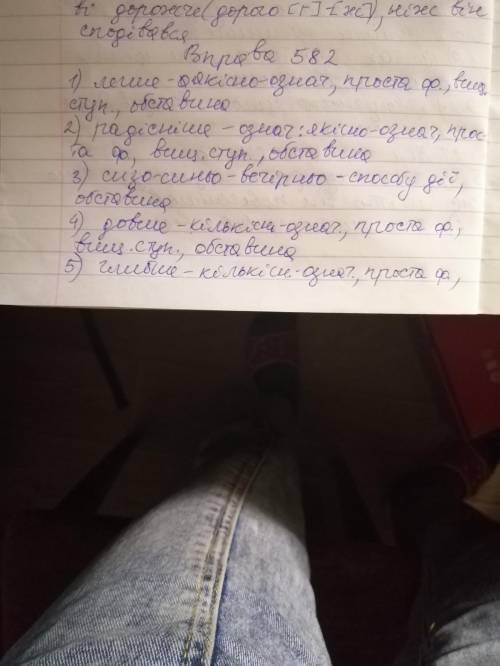 ті дорожче (дорого [г] - [ж]), ніж він
сподівався
Вправа 582
1) легше - якісно-означ, проста ф., вищ.
ступ., обставина
2) радісніше - означ: якісно-означ, прос-
та ф, вищ. ступ., обставина
3) сизо-синьо-вечірньо - способу дії,
обставина
4) довше - кількісн-означ., проста ф.,
вищ. ступ., обставина
5) глибше - кількісн-означ., проста ф.,